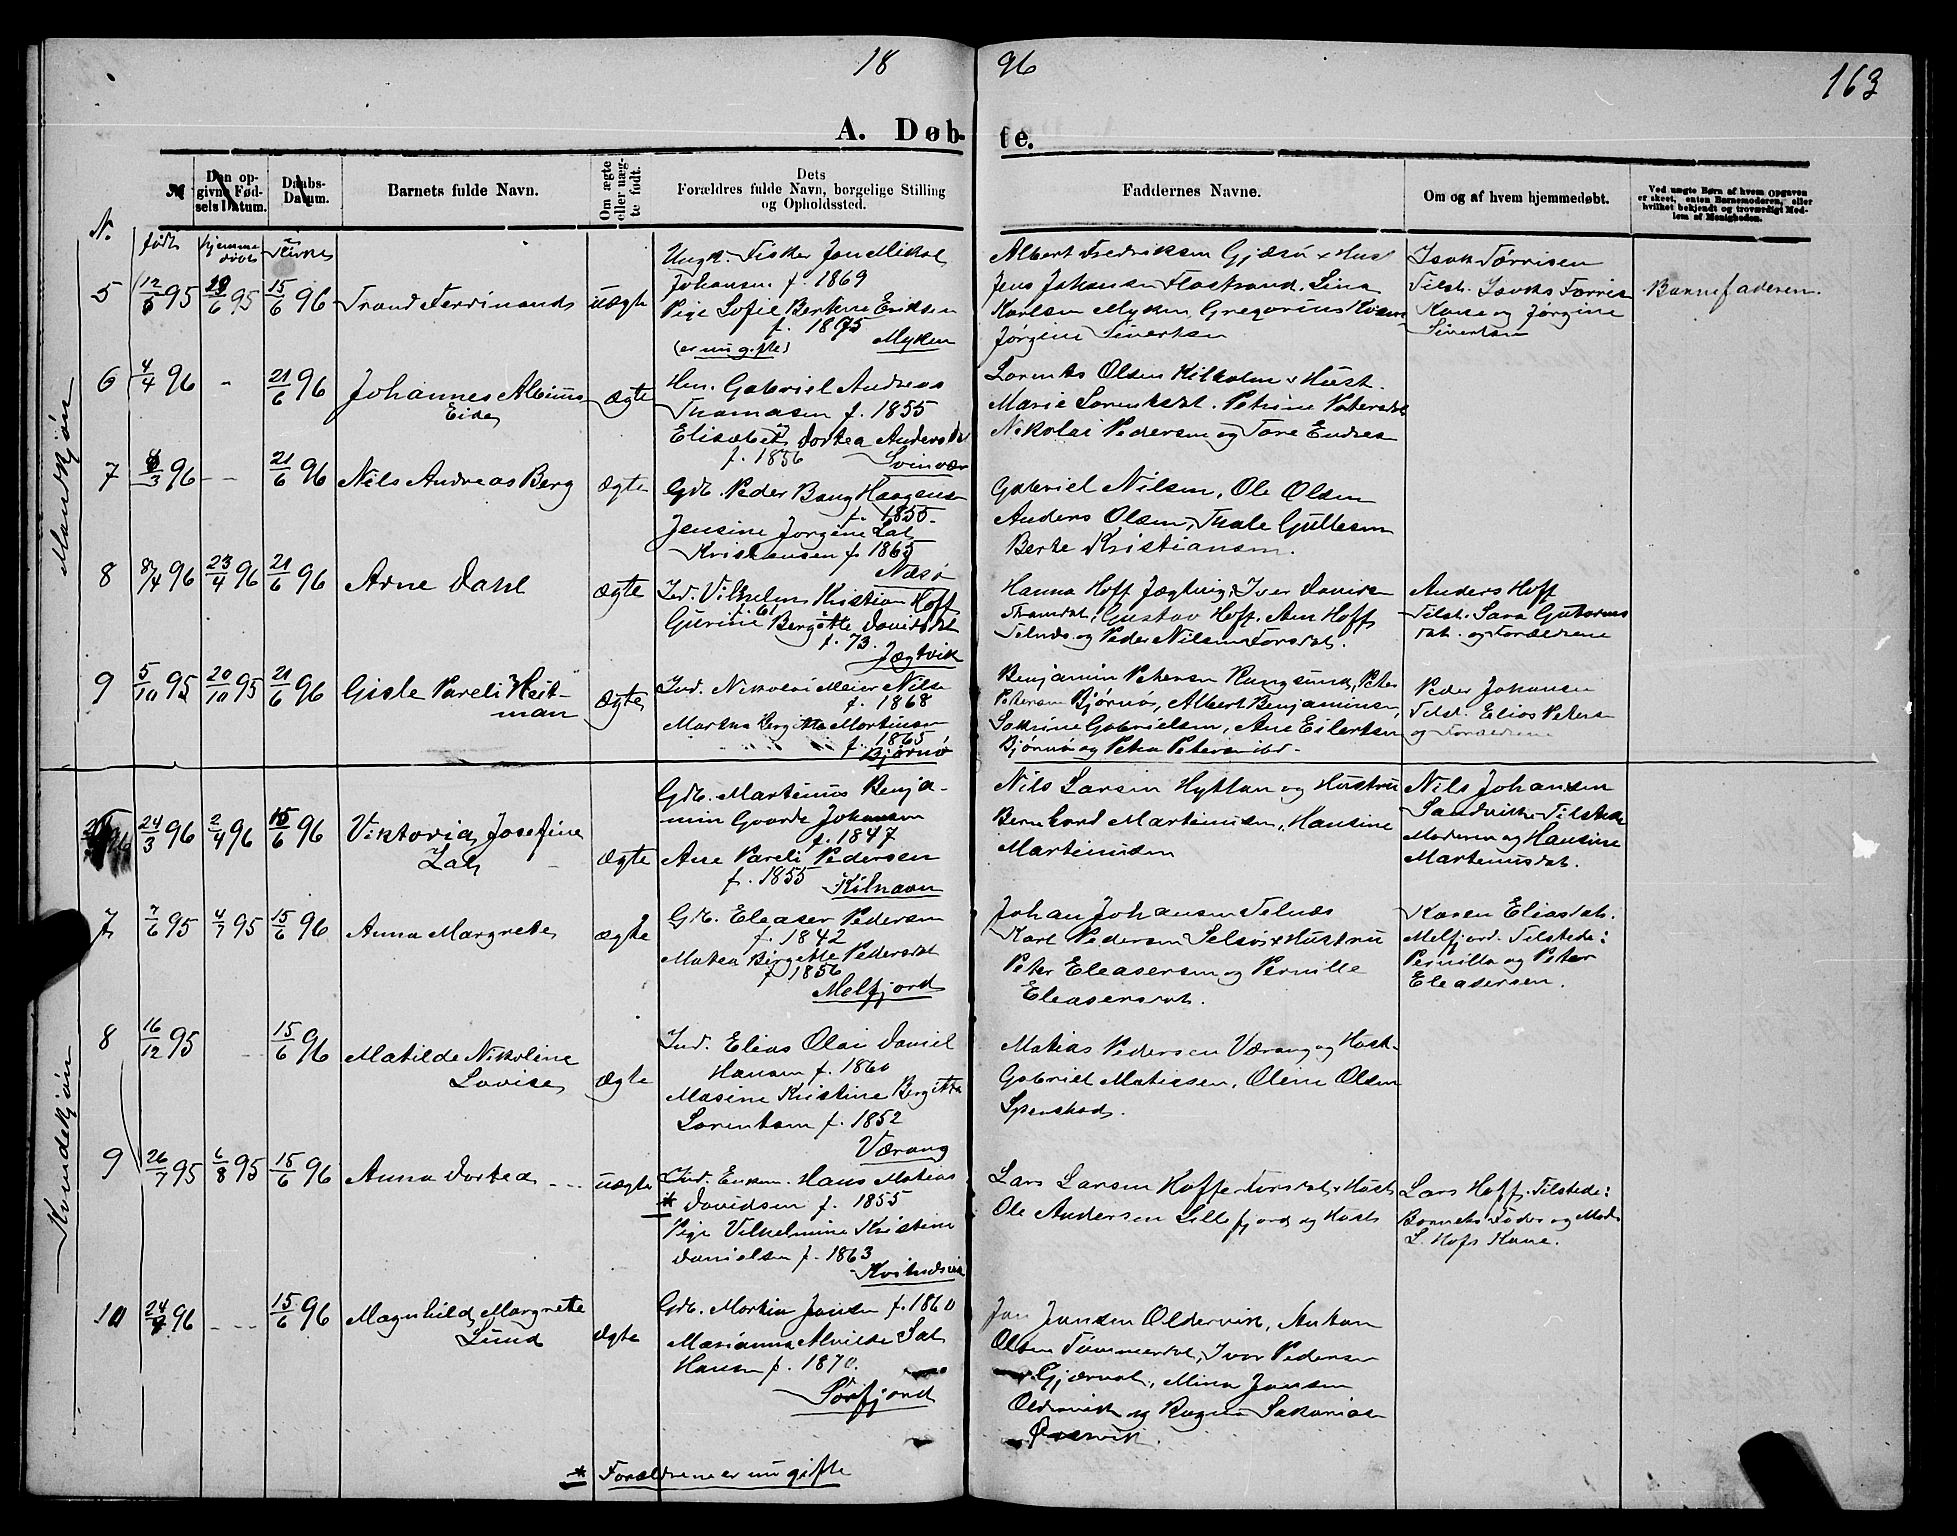 18 96
163
A. Døb- te.
N.
Den op-
givne Fød-
sels Datum.
Daabs-
Datum.
Barnets fulde Navn.
Om ægte
eller uæg-
te født.
Dets
Forældres fulde Navn, borgelige Stilling
og Opholdssted.
Faddernes Navne.
Om og af hvem hjemmedøbt.
Ved uægte Børn af hvem Opgaven
er skeet, enten Barnemoderen, eller
hvilket bekjendt og troværdigt Med-
lem af Menigheden.
født hjemme døbt Kirke
Mandkjøn
5 12/5 95 /6 95 15/6 96 Trand Ferdinand uægte
Ungk. Fisker Jon Mikal
Johansen f. 1869
Pige Sofie Berkine Eriksen
f. 1875
(er nu gifte) Myken
Albert Fredriksen Gjæsø + Hus
Jens Johansen Flostrand, Lina
Karlsen Myken Gregorius
Jørgine Sivertsen
Isak Tørrisen
Tilst. Isaks Tørris
Kone og Jørgine
Sivertsen
Barnefaderen.
6 4/4 96 - 21/6 96 Johannes Albinus
Eide
ægte
Hm. Gabriel Andreas
Thomasen f. 1855
Elisabet Dortea Andersdt
f. 1856 Svinvær
Lorents Olsen Kilholm + Hust.
Marie Lorentsdt. Petrine Petersdt
Nikolai Pedersen og Tore Endres
7 /3 96 - - 21/6 96 Nils Andreas Berg ægte
Gdb. Peder Bang Haagens
f. 1855.
Jensine Jorgine Lat
Kristensen f. 1865
Næsø
Gabriel Nilsen, Ole Olsen
Anders Olsen, Thale Gullesen
Berte Kristiansen.
8 /4 96 23/4 96 21/6 96 Arne Dahl ægte
Ind. Vilhelm Kristian Hoff
f. 61
Gurine Bergitte Davidsdt
f. 73.
Jægtvik
Hanna Hoff Jægtvig, Iver Daniksen
Gustav Hoff, Ane Hoff
Telnes og Peder Nilsen Forsdal.
Anders Hoff
Tilst. Sara Guttorms
dat. og Forældrene
9 5/10 95 20/10 95 21/6 96 Gisle Pareli Heit-
man
ægte
Ind. Nikolai Meier Nils
f. 1868
Martha Bergitta Mortensen
f. 1865
Bjørnø
Benjamin Petersen Rangsund, Peter
Petersen Bjørnø, Albert Benjaminsen,
Sakrine Gabrielsen, Ane Eilertsen
Bjørnø og Petra Petersen ibd.
Peder Johansen
Tilst. Elias Peters
og Forældrene
Kvindekjøn
24/3 96 2/4 96 15/6 96 Viktoria Josefine
Lat
ægte
Gdb. Martinus Benja-
min Goarde Johansen
f. 1847
Ane Pareli Pedersen
f. 1855 Kilhavn
Nils Larsen Hyttan og Hustru
Bernhard Martinusen, Hansine
Martinusen
Nils Johansen
Sandvik. Tilstede
Moderen og Hansine
Martinusdat.
7 7/6 95 4/7 95 15/6 96 Anna Margrete ægte
Gdb. Eleaser Pedersen
f. 1842
Matea Bergitte Pedersdat
f. 1856
Melfjord
Johan Johansen Telnæs
Karl Pedersen Selsøi + Hustru
Peter Eleasersen og Pernille
Eleasersdat.
Karen Eliasdat.
Melfjord. Tilstede:
Pernilla og Peter
Eleasersen.
8 16/12 95 - 15/6 96 Matilde Nikoline
Lovise
ægte
Ind. Elias Olai Daniel
Hansen f. 1860
Masine Kristine Bergitta
Lorentsen f. 1852
Værang
Matias Pedersen Værang og Hust.
Gabriel Matissen, Oline Olsen
Spenstad.
9 26/7 95 6/8 95 15/6 96 Anna Dortea - - - uægte
*
Ind. Enkem. Hans Matias
Davidsen f. 1855
Pige Vilhelmine Kristine
Danielsen f. 1863
Lars Larsen Hoff + Hust
Ole Andersen Lillefjord og Hust
Lars Hoff. Tilstede:
Barnets Fader og Mod.
L. Hofs Kone.
10 24/4 96 - - - 15/6 96 Magnhild Margrete
Lund
ægte
Gdb. Martin Jansen f. 1860
Marianna Alvilde Lat
Hansen f. 1870.
Sørfjord
Jan Jansen Oldervik, Anton
Olsen Tømmerdal, Ivar Pedersen
Gjærval, Mina Jansen
Oldervik og Ragna Sakarias
* Forældrene er nu gifte